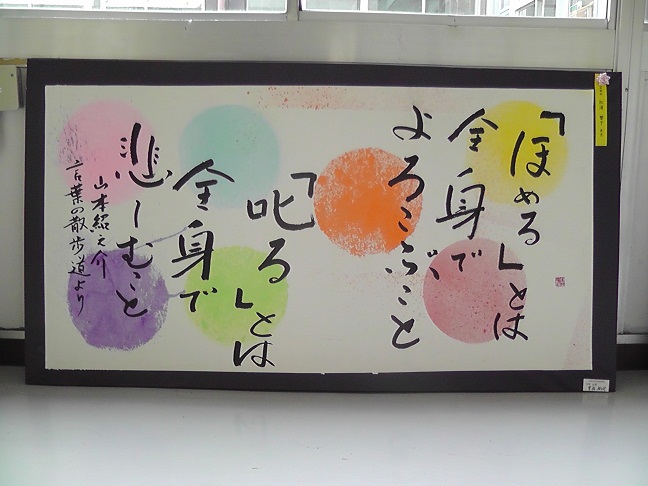 「ほめる」とは
全身で
よろこぶこと
「叱る」とは
全身で
悲しむこと
山本紹之介
言葉の散歩道より